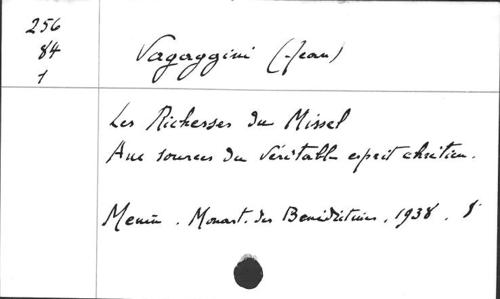 256
84
1
Vagaggini (Jean)
Les Richesses du Missel
Aux sources du véritable esprit chrétien.
Menin. Monast. des Bénédictines, 1938, 8